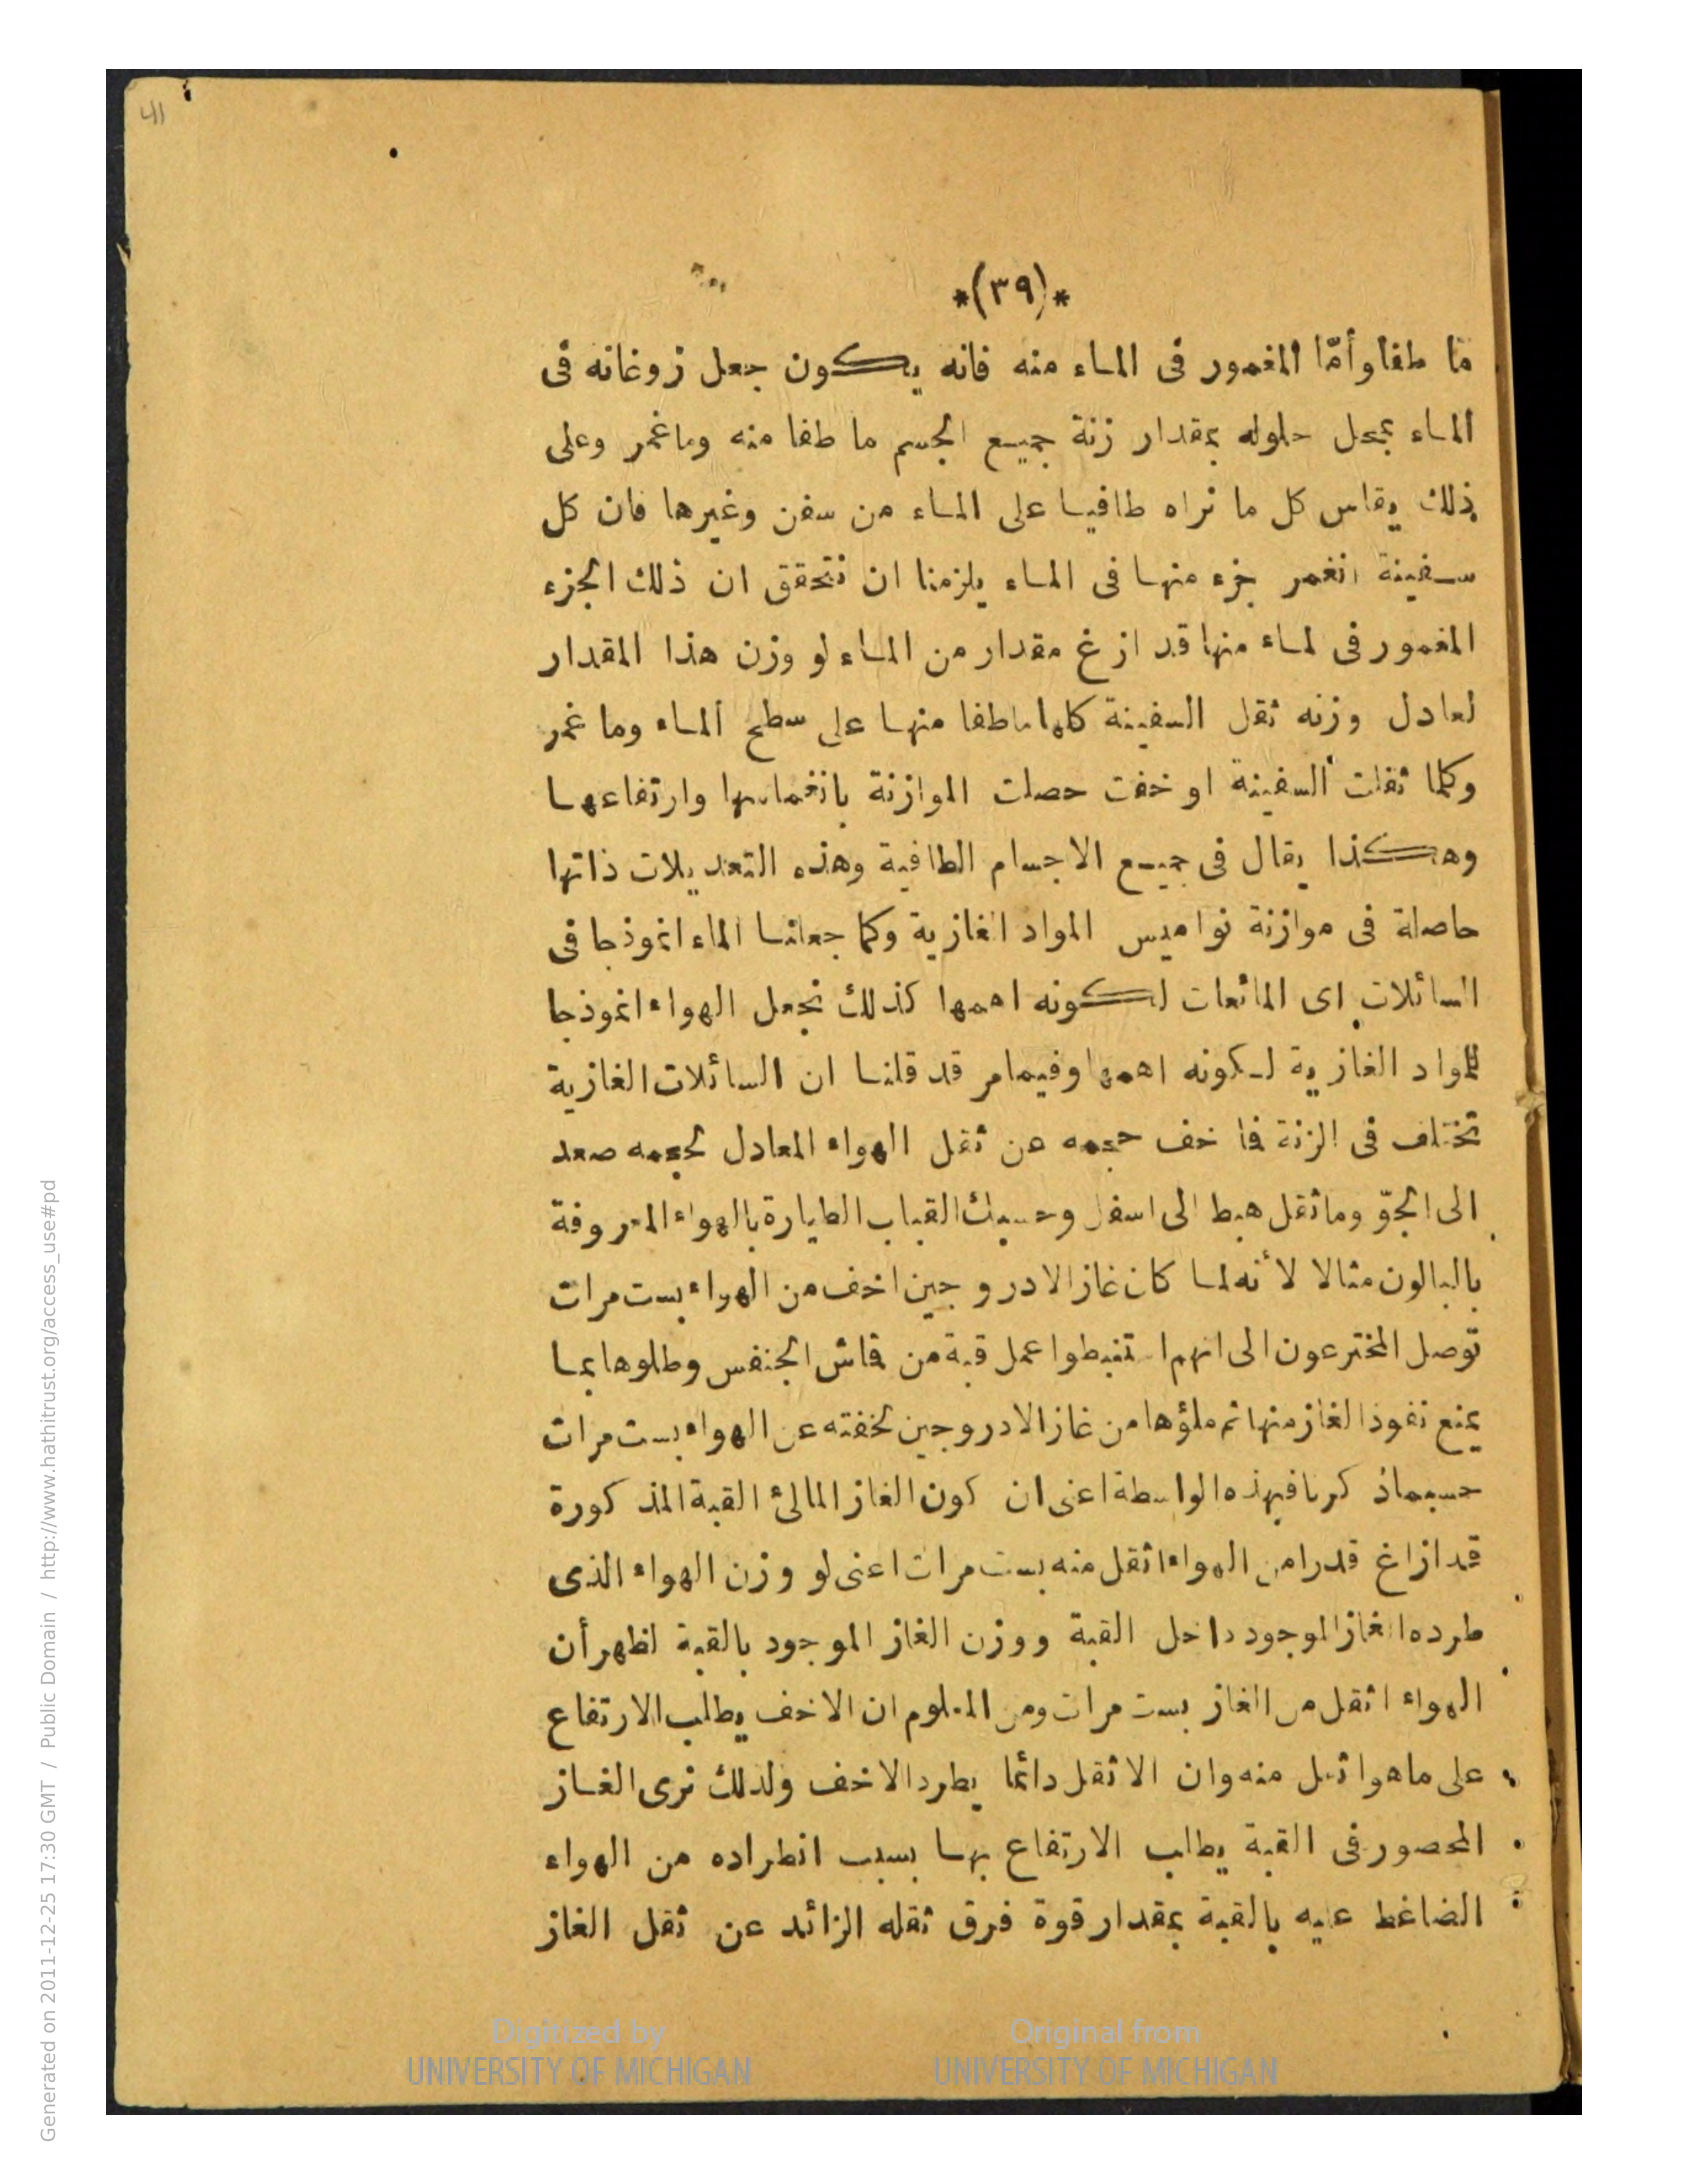 *(٣٩)*
ما طفا وأمّا المغمور فى الماء منه فانه يكون جعل زوغانه فى
الماء بمحل حلوله بمقدار زنة جميع الجسم ما طفا منه وما غمر وعلى
ذلك يقاس كل ما نراه طافيا على الماء من سفن وغيرها فان كل
سفينة انغمر جزء منها فى الماء يلزمنا ان نتحقق ان ذلك الجزء
المغمور فى لماء منها قد ازغ مقدار من الماء لو وزن هذا المقدار
لعادل وزنه ثقل السفينة كلها ما طفا منها على سطح الماء وما غمر
وكلما ثقلت السفينة او خفت حصلت الموازنة بانغماسها وارتفاعها
وهكذا يقال فى جميع الاجسام الطافية وهذه التعديلات ذاتها
حاصلة فى موازنة نواميس المواد الغازية وكما جعلنا الماء انموذجا فى
السائلات اى المائعات لكونه اهمها كذلك نجعل الهواء انموذجا
للمواد الغازية لكونه اهمها وفيما مر قد قلنا ان السائلات الغازية
تختلف فى الزنة فما خف حجمه عن ثقل الهواء المعادل لحجمه صعد
الى الجوّ وما ثقل هبط الى اسفل وحسبك القباب الطيارة بالهواء المعروفة
بالبالون مثالا لأنه لما كان غاز الادروجين اخف من الهواء بست مرات
توصل المخترعون الى انهم استنبطوا عمل قبة من قماش الجنفس وطلوها بما
يمنع نفوذ الغاز منها ثم ملؤها من غاز الادروجين لخفته عن الهواء بست مرات
حسبما ذكرنا فبهذه الواسطة اعنى ان كون الغاز المالئ القبة المذكورة
قد ازاغ قدرا من الهواء اثقل منه بست مرات اعنى لو وزن الهواء الذى
طرده الغاز الموجود داخل القبة ووزن الغاز الموجود بالقبة لظهر أن
الهواء اثقل من الغاز بست مرات ومن المعلوم ان الاخف يطلب الارتفاع
على ما هو اثقل منه وان الاثقل دائما يطرد الاخف ولذلك نرى الغاز
المحصور فى القبة يطلب الارتفاع بها بسبب انطراده من الهواء
الضاغط عليه بالقبة بمقدار قوة فرق ثقله الزائد عن ثقل الغاز
Digitized by
UNIVERSITY OF MICHIGAN
Original from
UNIVERSITY OF MICHIGAN
Generated on 2011-12-25 17:30 GMT / Public Domain / http://www.hathitrust.org/access_use#pd